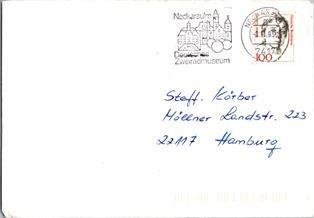 Neckarsulm
Deutsches
Zweiradmuseum
74172
100
Steff. Körber
Möllner Landstr. 223
22117 Hamburg